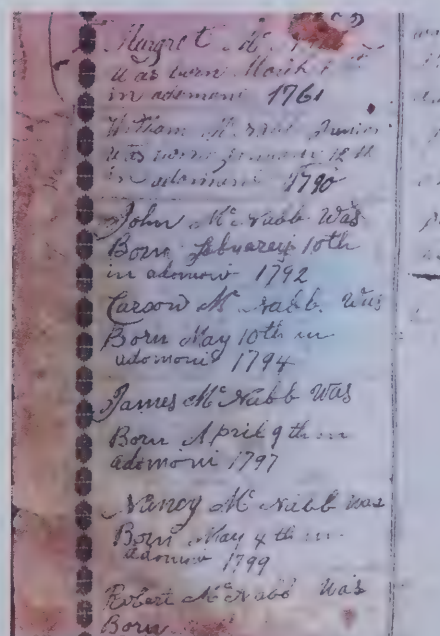 Margret Mc
was born March
in adomoni 1761
William McNabb Junior
was born January 12th
in adomini 1790
John McNabb Was
Born Februarey 10th
in adomoni 1792
Carson McNabb Was
Born May 10th in
adomoni 1794
James McNabb Was
Born April 9th in
adomoni 1797
Nancy McNabb was
Born May 4th in
adomini 1799
Robert McNabb Was
Born